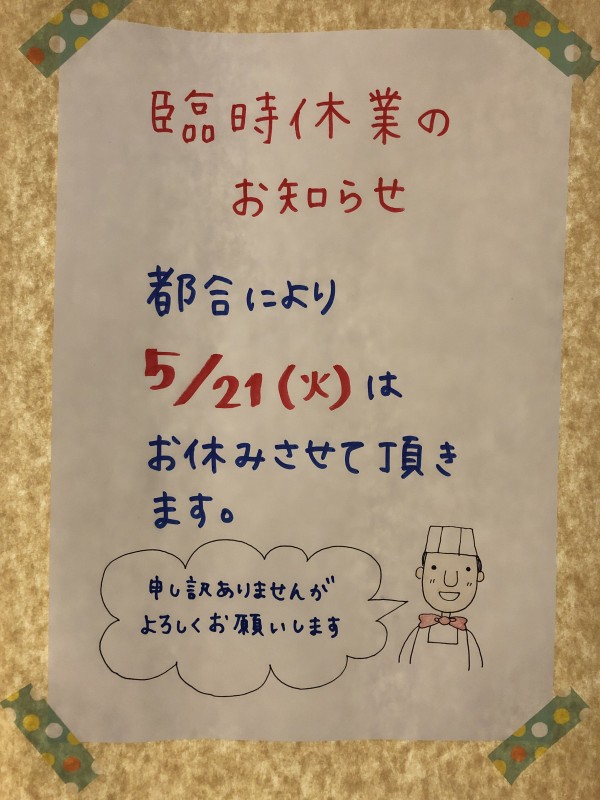 臨時休業の
お知らせ
都合により
5/21(火)は
お休みさせて頂き
ます。
申し訳ありませんが
よろしくお願いします